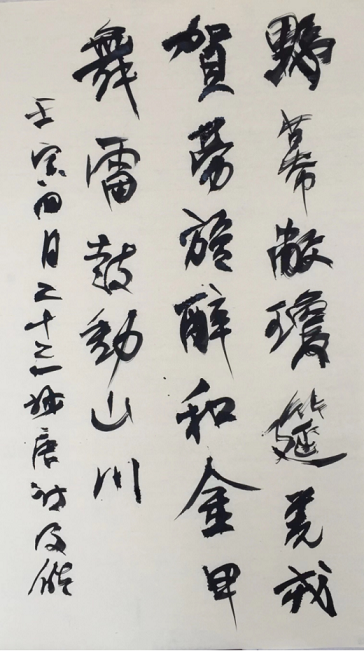 野幕敞瓊筵羌戎
賀勞旋醉和金甲
舞雷鼓動山川
壬寅四月二十唐詩